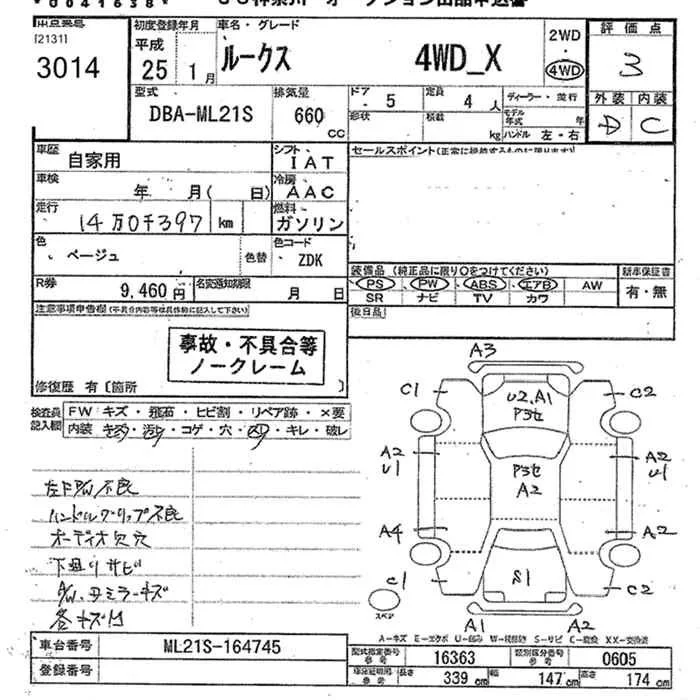 *0041638*
[2131]
3014
初度登録年月
平成
25 1月
車名・グレード
ルークス 4WD_X
2WD
・
4WD
評価点
3
外装 内装
D C
型式
DBA-ML21S
排気量
660
CC
ドア
・ 5
定員
4 人
形状
積載
kg
ディーラー・並行
モデル年式 年
ハンドル 左・右
車歴
自家用
シフト
IAT
車検
年 月( 日)
冷房
AAC
走行
14万0千397 km
燃料
ガソリン
色
・ベージュ
色替
色コード
・ ZDK
R券
9,460 円
名変通知期限
月 日
セールスポイント(正常に機能するものに限ります)
装備品 (純正品に限り○をつけてください)
PS PW ABS エアB AW
SR ナビ TV カワ
新車保証書
有・無
後日品
注意事項申告欄(不具合内容等は具体的に記入して下さい)
事故・不具合等
ノークレーム
修復歴 有〔箇所 〕
検査員記入欄
FW キズ・飛石・ヒビ割・リペア跡・×要
内装 キズ・汚れ・コゲ・穴・スレ・キレ・破レ
左F P/W 不良
ハンドルグリップ不良
オーディオ欠穴
下廻りサビ
各キズ凹
A3
C1 C2
U2.A1
A2 U1
A2 U1
A2
A4 A2
S1
C1 C2
スペア
A1 A2
A-キズ E-エクボ U-凹み W-補修跡 S-サビ C-腐蝕 XX-交換済
車台番号
ML21S-164745
登録番号
型式指定番号 参考
16363
類別区分番号 参考
0605
車検証明用 参考
長さ 339 cm
幅 147 cm
高さ 174 cm